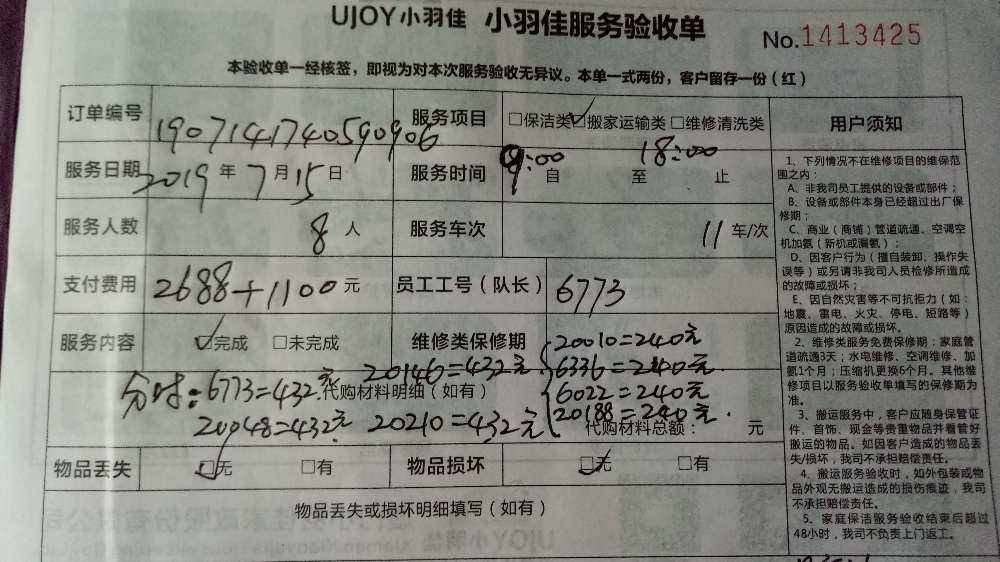 UJOY小羽佳 小羽佳服务验收单
No.1413425
本验收单一经核签，即视为对本次服务验收无异议。本单一式两份，客户留存一份（红）
订单编号 1907141740590906 服务项目 □保洁类 ☑搬家运输类 □维修清洗类
服务日期 2019年7月15日 服务时间 9:00 自 18:00 至 止
服务人数 8人 服务车次 11车/次
支付费用 2688+1100元 员工工号（队长） 6773
服务内容 ☑完成 □未完成 维修类保修期
20010=240元
分时：6773=432元 20146=432元 6336=240元
代购材料明细（如有） 6022=240元
20048=432元 20210=432元 20188=240元
代购材料总额： 元
物品丢失 ☑无 □有 物品损坏 ☑无 □有
物品丢失或损坏明细填写（如有）
用户须知
1、下列情况不在维修项目的维保范
围之内：
A、非我司员工提供的设备或部件；
B、设备或部件本身已经超过出厂保
修期；
C、商业（商铺）管道疏通、空调空
机加氨（新机或漏氨）；
D、因客户行为（擅自装卸、操作失
误等）或另请非我司人员检修所造成
的故障或损坏；
E、因自然灾害等不可抗拒力（如：
地震、雷电、火灾、停电、短路等）
原因造成的故障或损坏。
2、维修类服务免费保修期：家庭管
道疏通3天；水电维修、空调维修、加
氨1个月；压缩机更换6个月。其他维
修项目以服务验收单填写的保修期为
准。
3、搬运服务中，客户应随身保管证
件、首饰、现金等贵重物品并看管好
搬运的物品。如因客户造成的物品丢
失/损坏，我司不承担赔偿责任。
4、搬运服务验收时，如外包装或物
品外观无搬运造成的损伤痕迹，我司
不承担赔偿责任。
5、家庭保洁服务验收结束后超过
48小时，我司不负责上门返工。